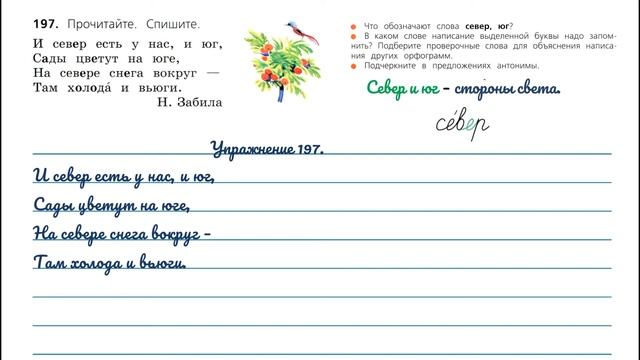 197. Прочитайте. Спишите.
И север есть у нас, и юг,
Сады цветут на юге,
На севере снега вокруг —
Там холода́ и вьюги.
Н. Забила
● Что обозначают слова север, юг?
● В каком слове написание выделенной буквы надо запом-
нить? Подберите проверочные слова для объяснения написа-
ния других орфограмм.
● Подчеркните в предложениях антонимы.
Север и юг – стороны света.
се́вер
Упражнение 197.
И север есть у нас, и юг,
Сады цветут на юге,
На севере снега вокруг –
Там холода и вьюги.